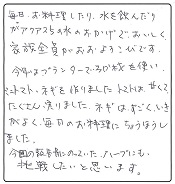 毎日、お料理したり、水を飲んだり
がアクアス56の水のおかげで、おいしく、
家族全員がおおようこびです。
今年はプランターでろか材を使い、
ミニトマト、ネギを作りました トマトは、甘くて
たくさん実りました。ネギは、すごくいき
がよく、毎日のお料理にちょうほうし
ました。
今回の緑者にのっていた、ハーブにも、
挑戦したいと思います。